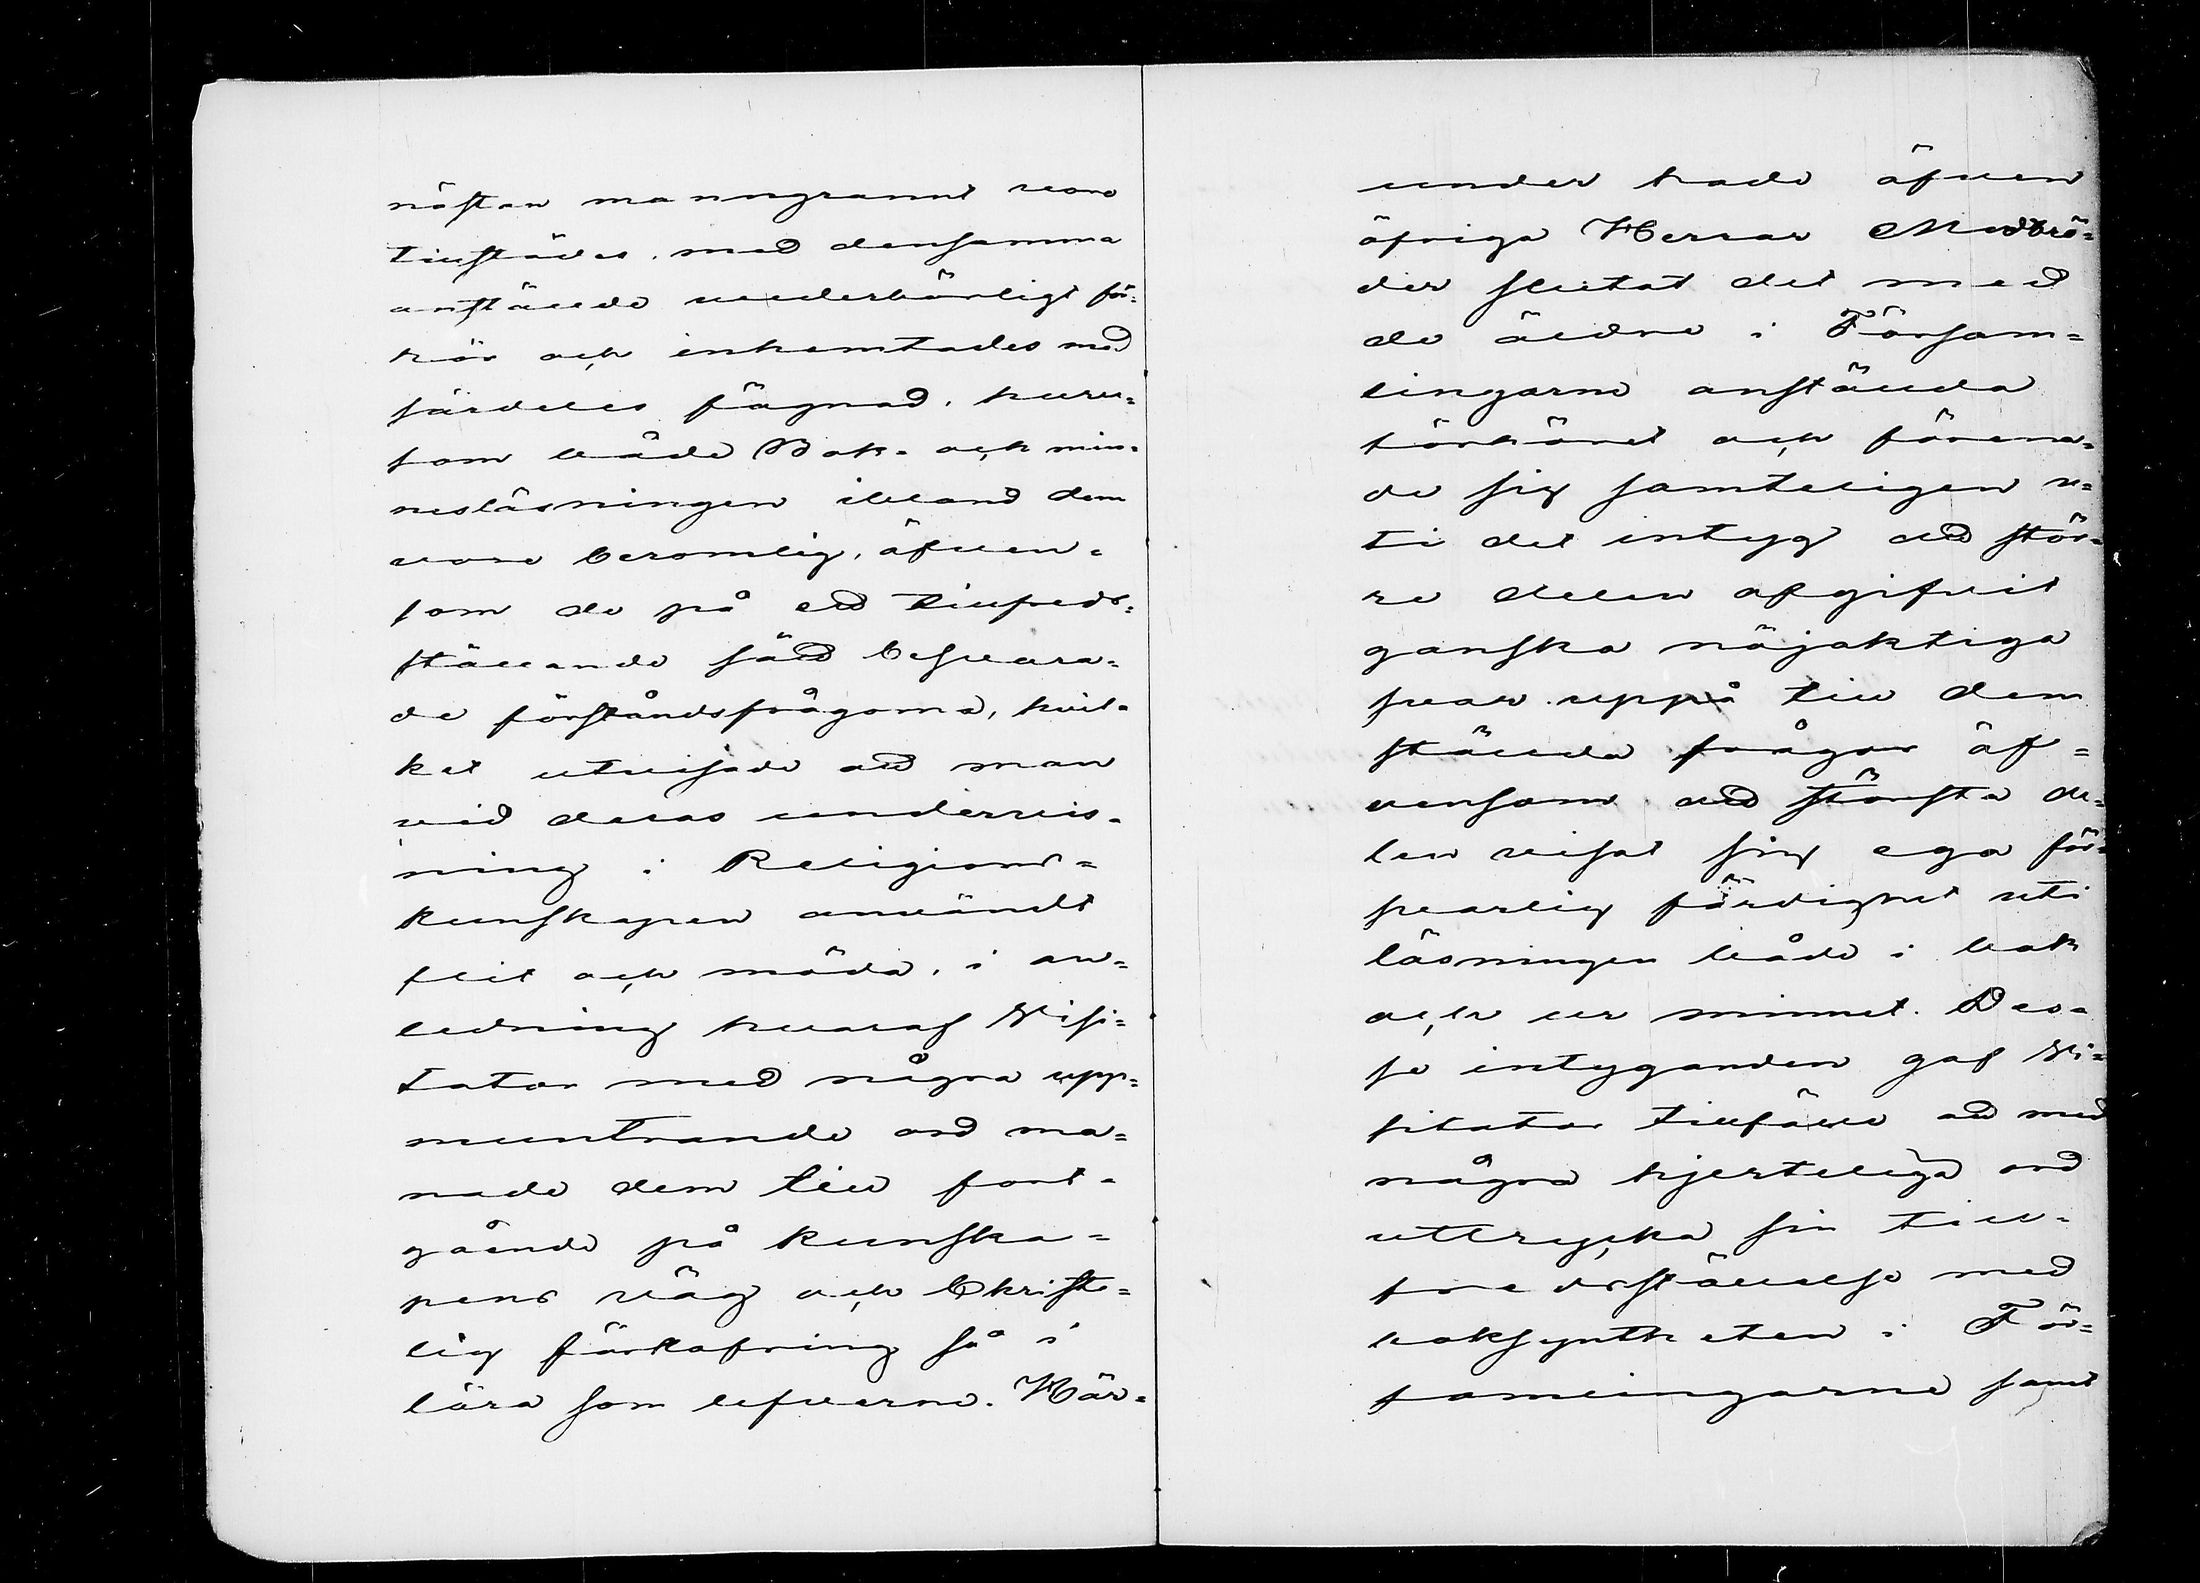 nästan manngrannt voro
tillstädes, med densamma
anstälde vederbörligt för-
hör och inhemtades med
särdeles fägnad, huru-
som både Bok- och min-
nesläsningen ibland dem
vore beromlig, äfven-
som de på ett tillfreds-
ställande sätt besvara-
de förståndsfrågorna, hvil-
ket utvisade att man
vid deras undervis-
ning i Religions-
kunskapen användt
flit och möda, i an-
ledning hvaraf Visi-
tator med några upp-
muntrande ord ma-
nade dem till fort-
gående på kunska-
pens väg och Christe-
lig förkofring så i
lära som lefverne. Här-
under hade äfven
öfriga Herrar Medbrö-
der slutat det med
de äldre i Försam-
lingarne anstälda
förhöret och förena-
de sig samteligen u-
ti det intyg att stör-
re delen afgifvit
ganska nöjaktiga
svar uppå till dem
stälda frågor äf-
vensom att största de-
len visat sig ega för-
svarlig färdighet uti
läsningen både i bok
och ur minnet. Des-
se intyganden gaf Vi-
sitator tillfälle att med
några hjerteliga ord
uttrycka sin till-
fredsställelse med
boksyntheten i För-
samlingarne samt